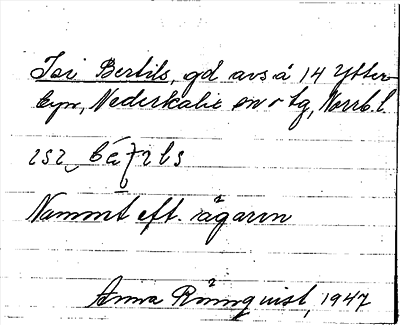 Isi Bertils, gd avs å 14 Ytter-
byn, Nederkalix sn o tg, Norrb. l.
Namnet eft. ägaren
Anna Rönnqvist, 1947